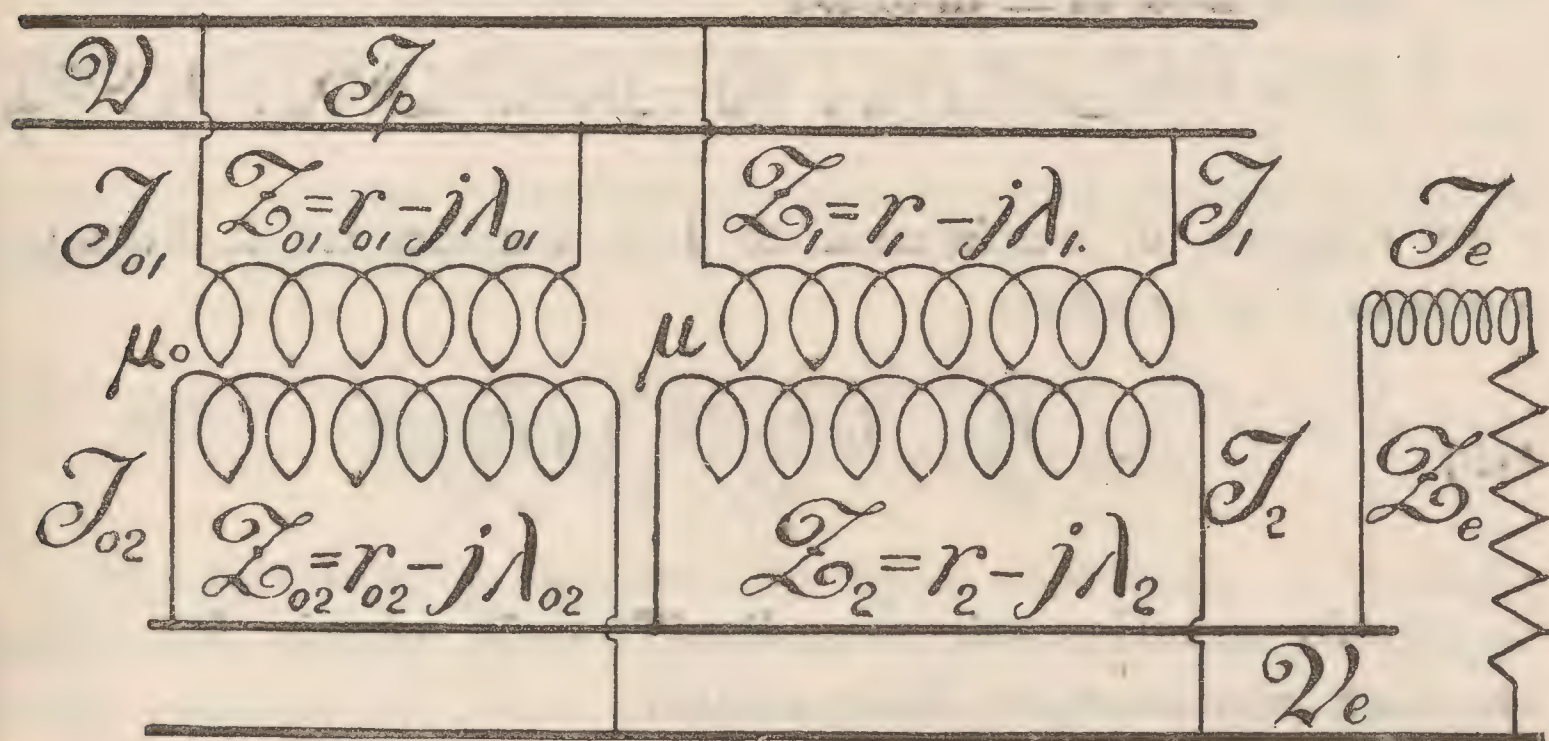 V
I_p
I_01
Z_01 = r_01 - jλ_01
Z_1 = r_1 - jλ_1.
I_1
I_e
μ_0
μ
I_02
Z_02 = r_02 - jλ_02
Z_2 = r_2 - jλ_2
I_2
Z_e
V_e